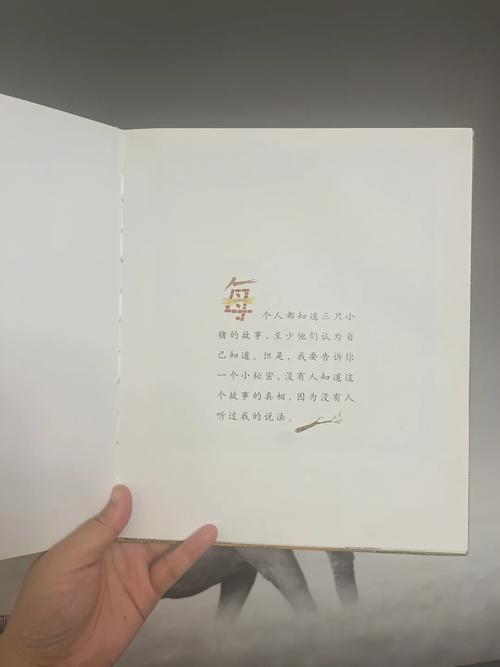 每个人都知道三只小
猪的故事，至少他们认为自
己知道。但是，我要告诉你
一个小秘密，没有人知道这
个故事的真相，因为没有人
听过我的说法。